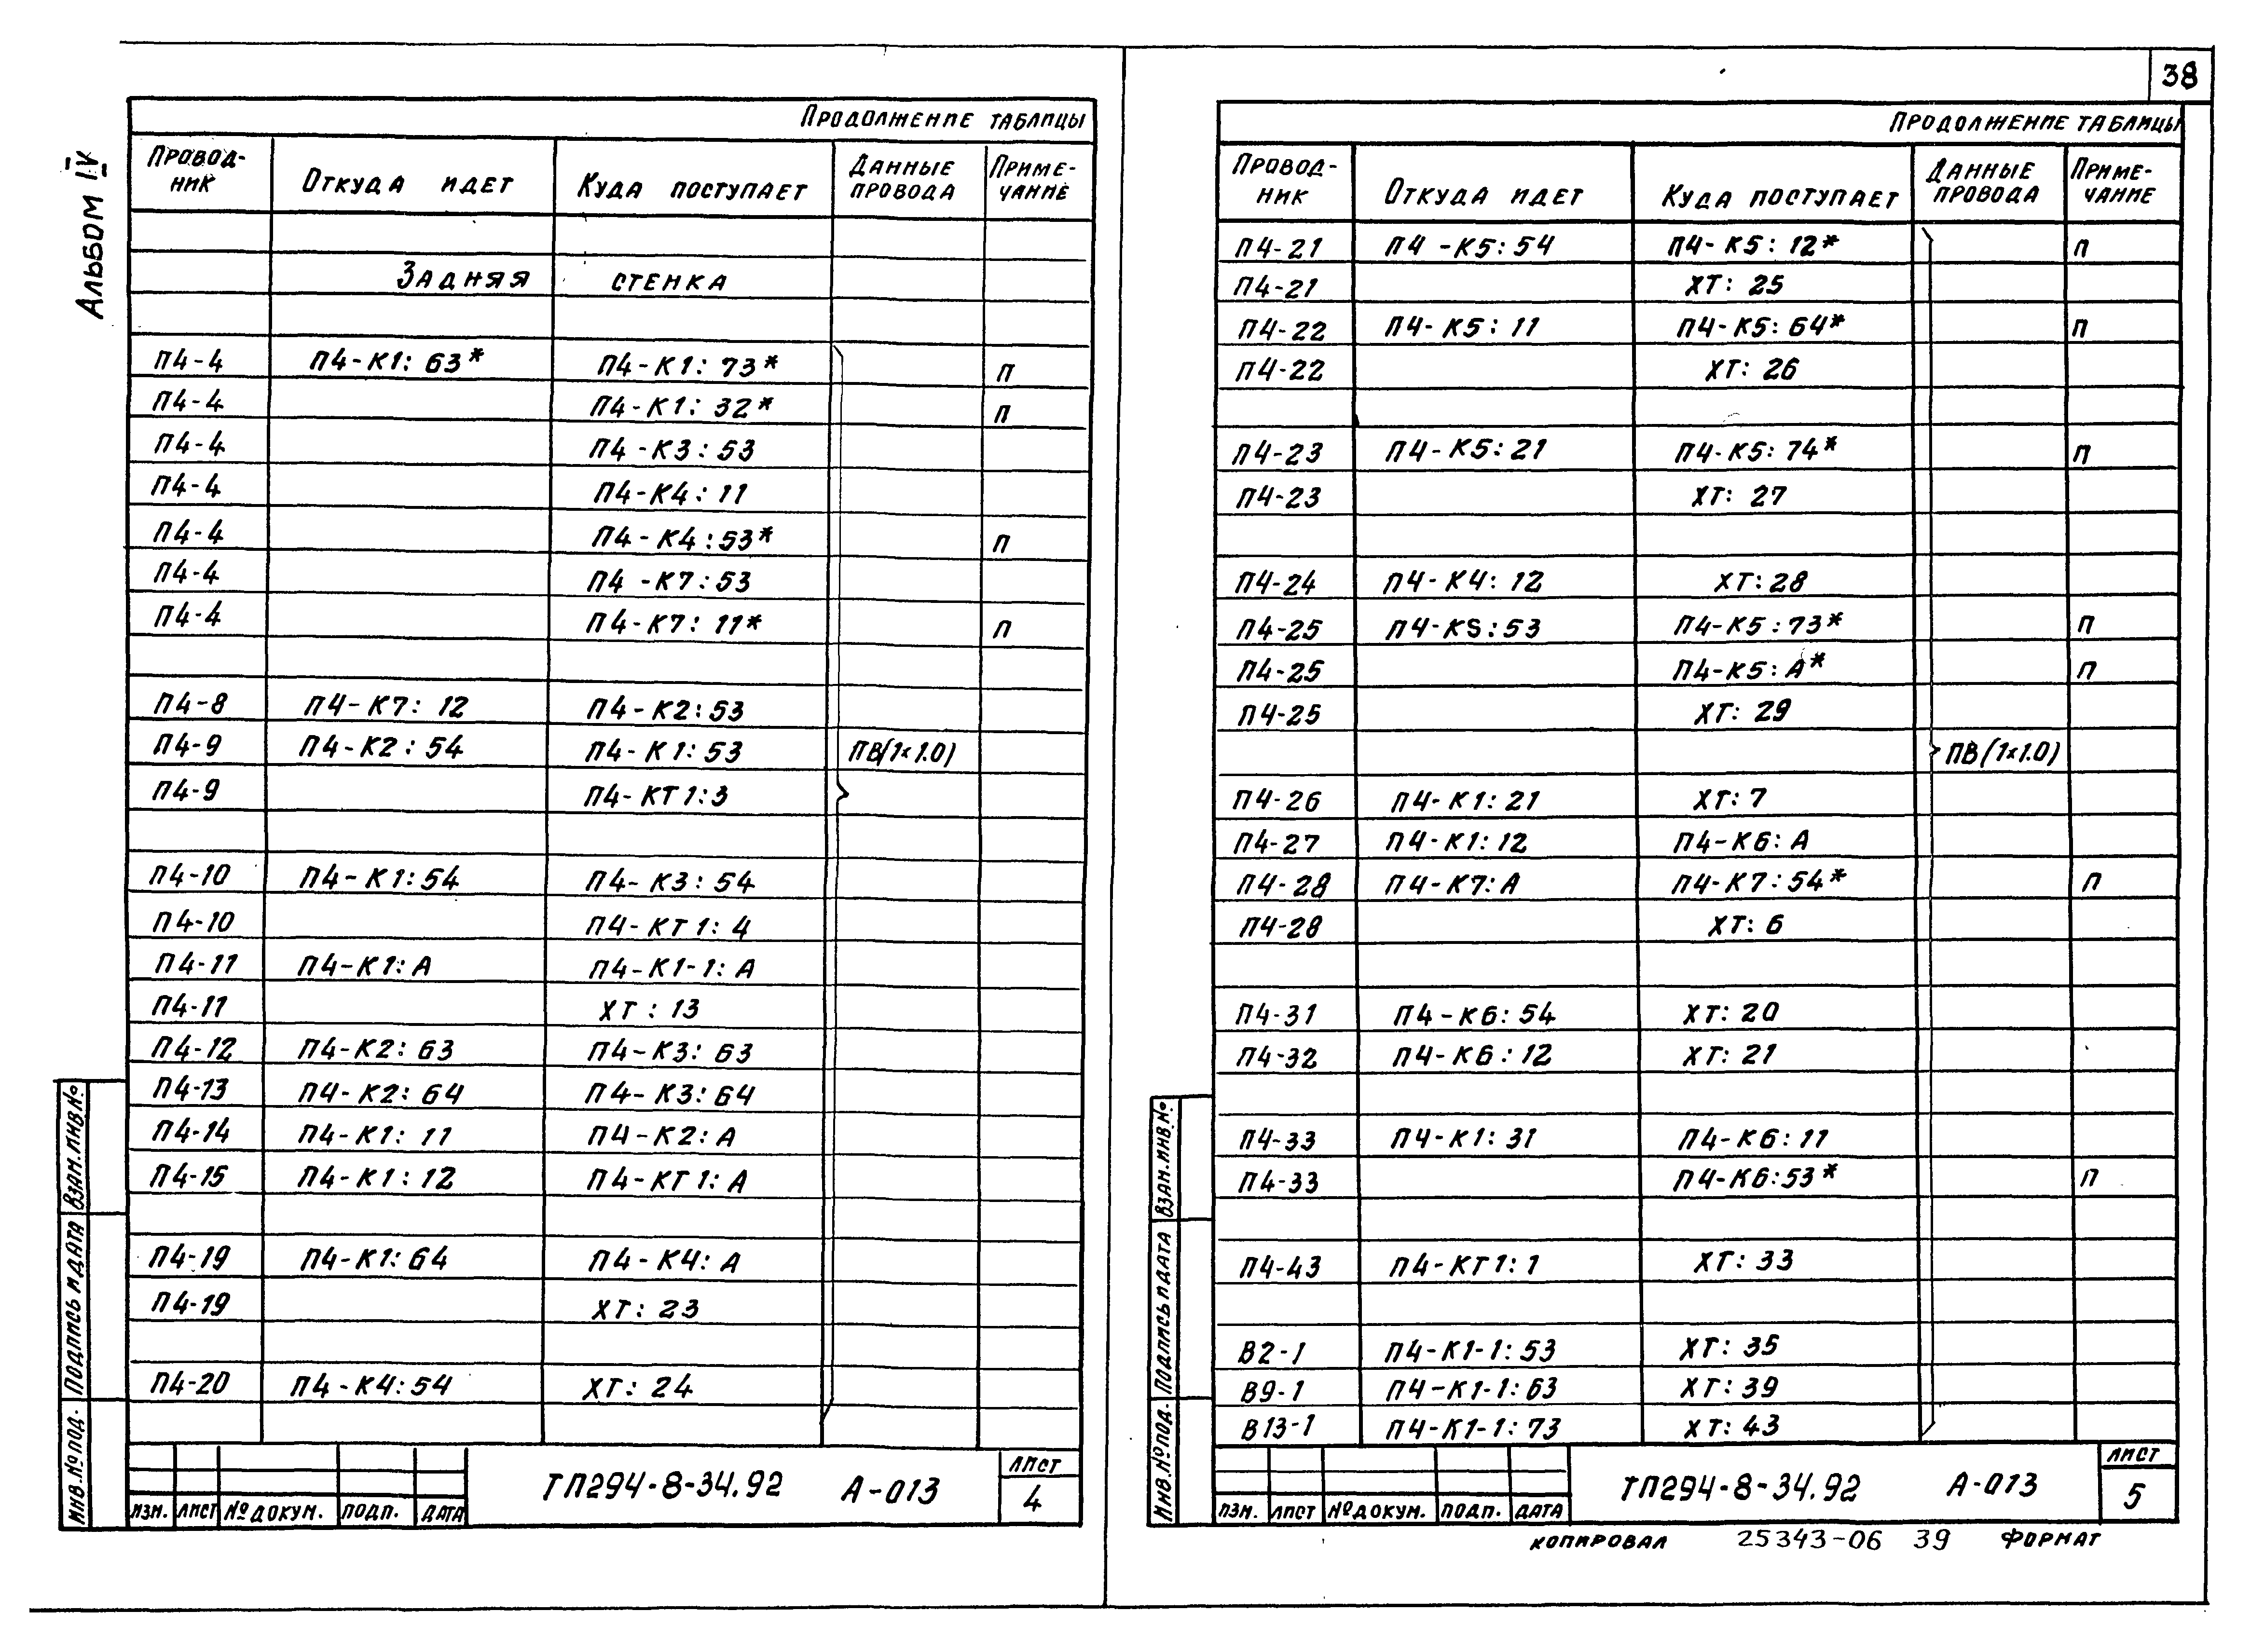 38
Альбом IV
Продолжение таблицы
Провод-ник Откуда идет Куда поступает Данные провода Приме-чание
Задняя стенка
П4-4 П4-К1: 63* П4-К1: 73* П
П4-4 П4-К1: 32* П
П4-4 П4-К3: 53
П4-4 П4-К4: 11
П4-4 П4-К4: 53* П
П4-4 П4-К7: 53
П4-4 П4-К7: 11* П
П4-8 П4-К7: 12 П4-К2: 53
П4-9 П4-К2: 54 П4-К1: 53 ПВ(1х1.0)
П4-9 П4-КТ1: 3
П4-10 П4-К1: 54 П4-К3: 54
П4-10 П4-КТ1: 4
П4-11 П4-К1: А П4-К1-1: А
П4-11 ХТ: 13
П4-12 П4-К2: 63 П4-К3: 63
П4-13 П4-К2: 64 П4-К3: 64
П4-14 П4-К1: 11 П4-К2: А
П4-15 П4-К1: 12 П4-КТ1: А
П4-19 П4-К1: 64 П4-К4: А
П4-19 ХТ: 23
П4-20 П4-К4: 54 ХТ: 24
Взам. инв. №
Подпись и дата
Инв. № под.
Изм. Лист № докум. Подп. Дата
ТП294-8-34.92 А-013
Лист
4
Продолжение таблицы
Провод-ник Откуда идет Куда поступает Данные провода Приме-чание
П4-21 П4-К5: 54 П4-К5: 12* П
П4-21 ХТ: 25
П4-22 П4-К5: 11 П4-К5: 64* П
П4-22 ХТ: 26
П4-23 П4-К5: 21 П4-К5: 74* П
П4-23 ХТ: 27
П4-24 П4-К4: 12 ХТ: 28
П4-25 П4-К5: 53 П4-К5: 73* П
П4-25 П4-К5: А* П
П4-25 ХТ: 29
ПВ(1х1.0)
П4-26 П4-К1: 21 ХТ: 7
П4-27 П4-К1: 12 П4-К6: А
П4-28 П4-К7: А П4-К7: 54* П
П4-28 ХТ: 6
П4-31 П4-К6: 54 ХТ: 20
П4-32 П4-К6: 12 ХТ: 21
П4-33 П4-К1: 31 П4-К6: 11
П4-33 П4-К6: 53* П
П4-43 П4-КТ1: 1 ХТ: 33
В2-1 П4-К1-1: 53 ХТ: 35
В9-1 П4-К1-1: 63 ХТ: 39
В13-1 П4-К1-1: 73 ХТ: 43
Взам. инв. №
Подпись и дата
Инв. № под.
Изм. Лист № докум. Подп. Дата
ТП294-8-34.92 А-013
Лист
5
Копировал 25343-06 39 Формат